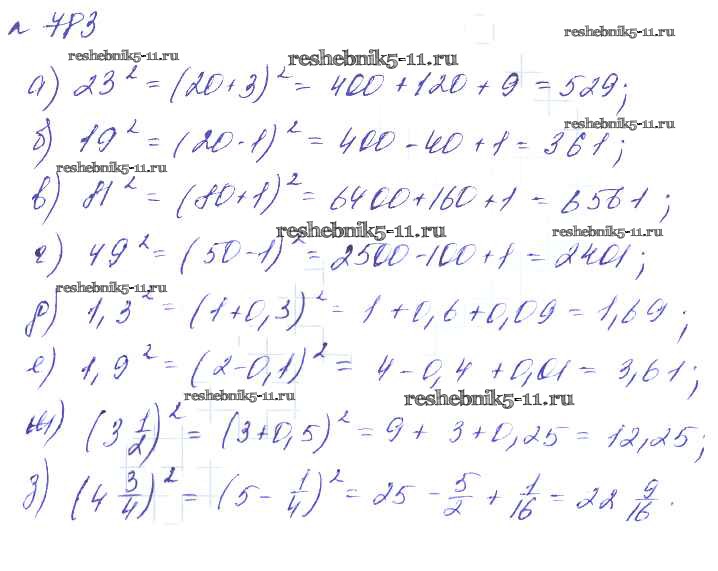 № 783
reshebnik5-11.ru
reshebnik5-11.ru
reshebnik5-11.ru
а) 23² = (20+3)² = 400 + 120 + 9 = 529;
reshebnik5-11.ru
б) 19² = (20-1)² = 400 - 40 + 1 = 361;
reshebnik5-11.ru
в) 81² = (80+1)² = 6400 + 160 + 1 = 6561;
reshebnik5-11.ru
reshebnik5-11.ru
г) 49² = (50-1)² = 2500 - 100 + 1 = 2401;
reshebnik5-11.ru
д) 1,3² = (1+0,3)² = 1 + 0,6 + 0,09 = 1,69;
е) 1,9² = (2-0,1)² = 4 - 0,4 + 0,01 = 3,61;
reshebnik5-11.ru
reshebnik5-11.ru
ж) (3 1/2)² = (3+0,5)² = 9 + 3 + 0,25 = 12,25;
з) (4 3/4)² = (5 - 1/4)² = 25 - 5/2 + 1/16 = 22 9/16.